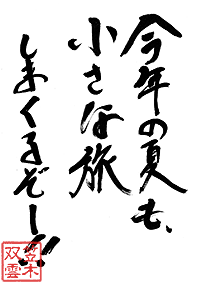 今年の夏も、
小さな旅
しまくるぞー!!
笠木
双雲